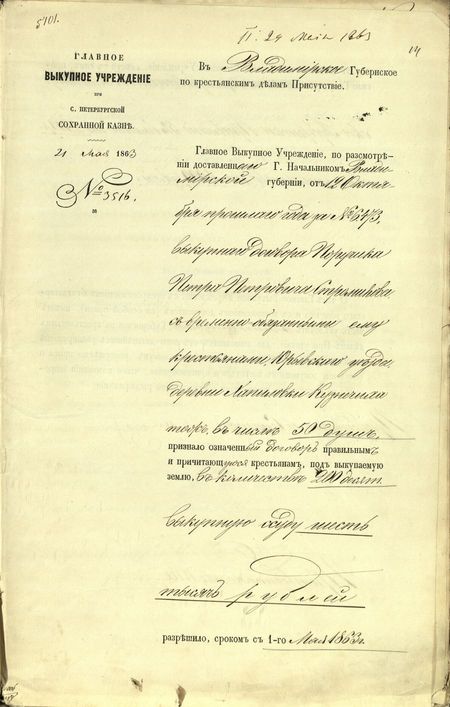 5701.
П. 29 Мая 1863
14
ГЛАВНОЕ
ВЫКУПНОЕ УЧРЕЖДЕНІЕ
ПРИ
С. ПЕТЕРБУРГСКОЙ
СОХРАННОЙ КАЗНѢ.
21 мая 1863
№ 3516.
Въ Владимірское Губернское
по крестьянскимъ дѣламъ Присутствіе.
Главное Выкупное Учрежденіе, по разсмотрѣ-
ніи доставленнаго Г. Начальникомъ Влади-
мірской губерніи, отъ 12 Октя
бря прошлаго года за № 6473,
выкупнаго договора Поручика
Петра Петровича
съ временно обязанными ему
крестьянами, Юрьевскаго уѣзда,
деревни
тожъ, въ числѣ 50 душъ,
признало означенный договоръ правильнымъ
и причитающуюся крестьянамъ, подъ выкупаемую
землю, въ количествѣ 200 десят.
выкупную ссуду шесть
тысячъ рублей
разрѣшило, срокомъ съ 1-го Мая 1863 г.